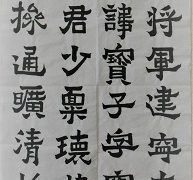 將軍建寧
諱寶子字
君少稟瓌
操通曠清